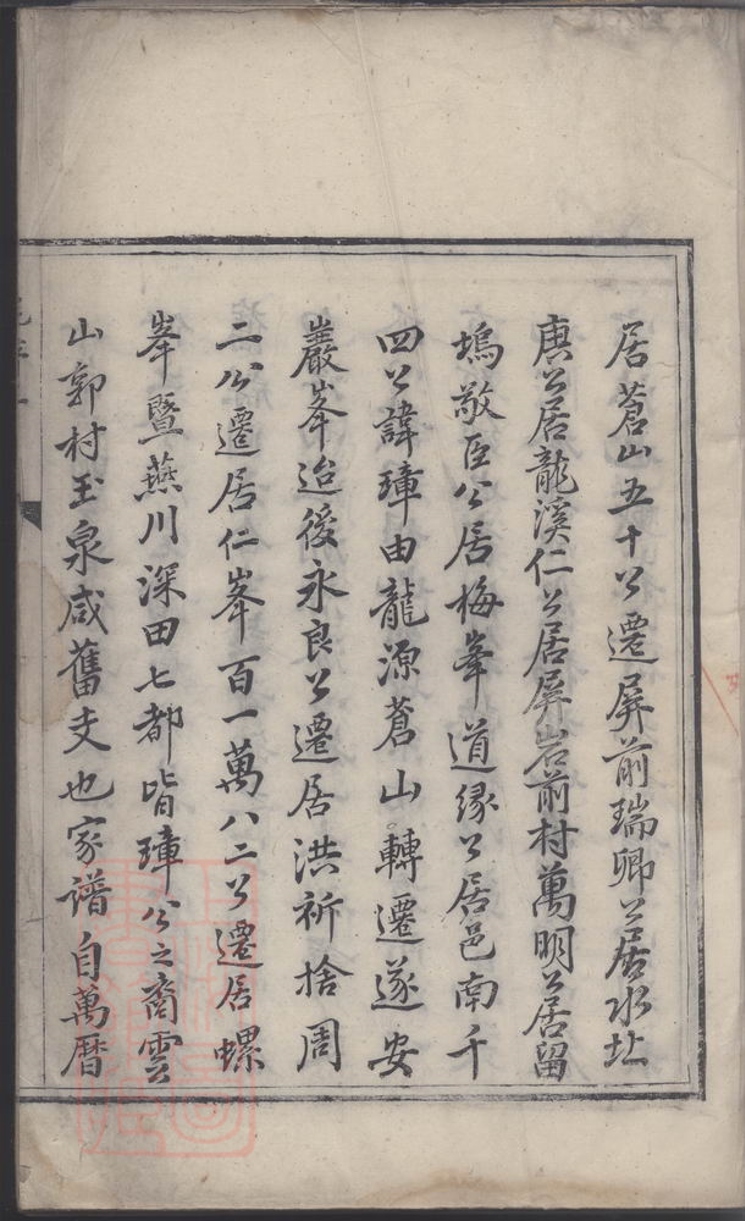 居蒼山五十公遷屏前瑞卿公居水坵
庚公居龍溪仁公居屏岩前村萬明公居留
塢敬臣公居梅峯道緣公居邑南千
四公諱璋由龍源蒼山轉遷遂安
巖峯迨後永良公遷居洪祈捨周
二公遷居仁峯百一萬八二公遷居螺
峯暨燕川深田七都皆璋公之裔雲
山郭村玉泉咸舊支也家譜自萬曆